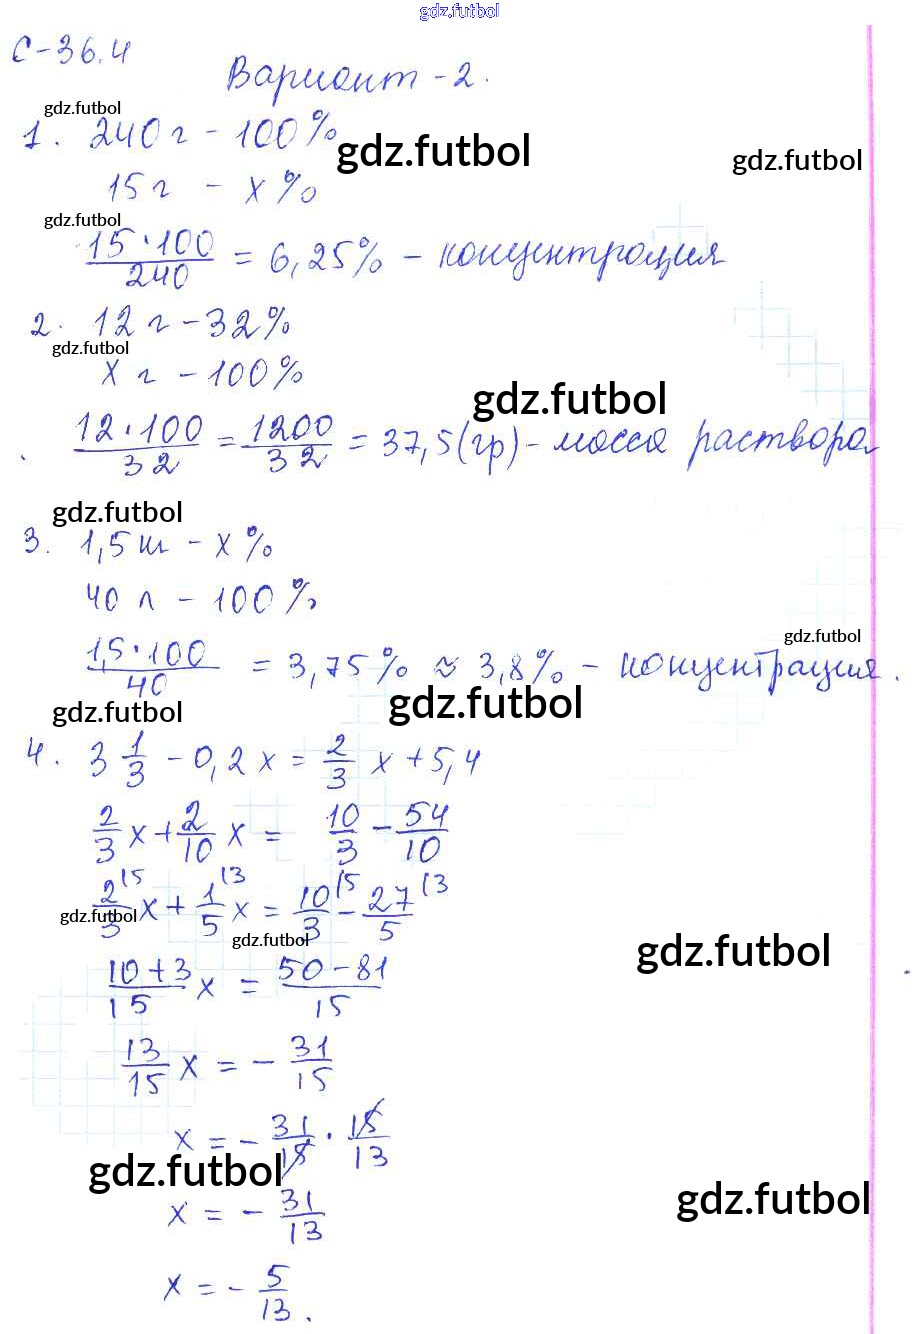 gdz.futbol
С-36.4
Вариант-2.
gdz.futbol
1. 240 г - 100%
gdz.futbol
gdz.futbol
15 г - x%
gdz.futbol
15·100/240 = 6,25% - концентрация
2. 12 г - 32%
gdz.futbol
x г - 100%
gdz.futbol
12·100/32 = 1200/32 = 37,5(гр) - масса раствора
gdz.futbol
3. 1,5 кг - x%
40 л - 100%
gdz.futbol
1,5·100/40 = 3,75% ≈ 3,8% - концентрация.
gdz.futbol
gdz.futbol
4. 3 1/3 - 0,2x = 2/3 x + 5,4
2/3 x + 2/10 x = 10/3 - 54/10
2/3 (5 x + 1/5 (3 x = 10/3 (5 - 27/5 (3
gdz.futbol
gdz.futbol
gdz.futbol
10+3/15 x = 50-81/15
13/15 x = - 31/15
x = - 31/15 · 15/13
gdz.futbol
gdz.futbol
x = - 31/13
x = - 5/13.